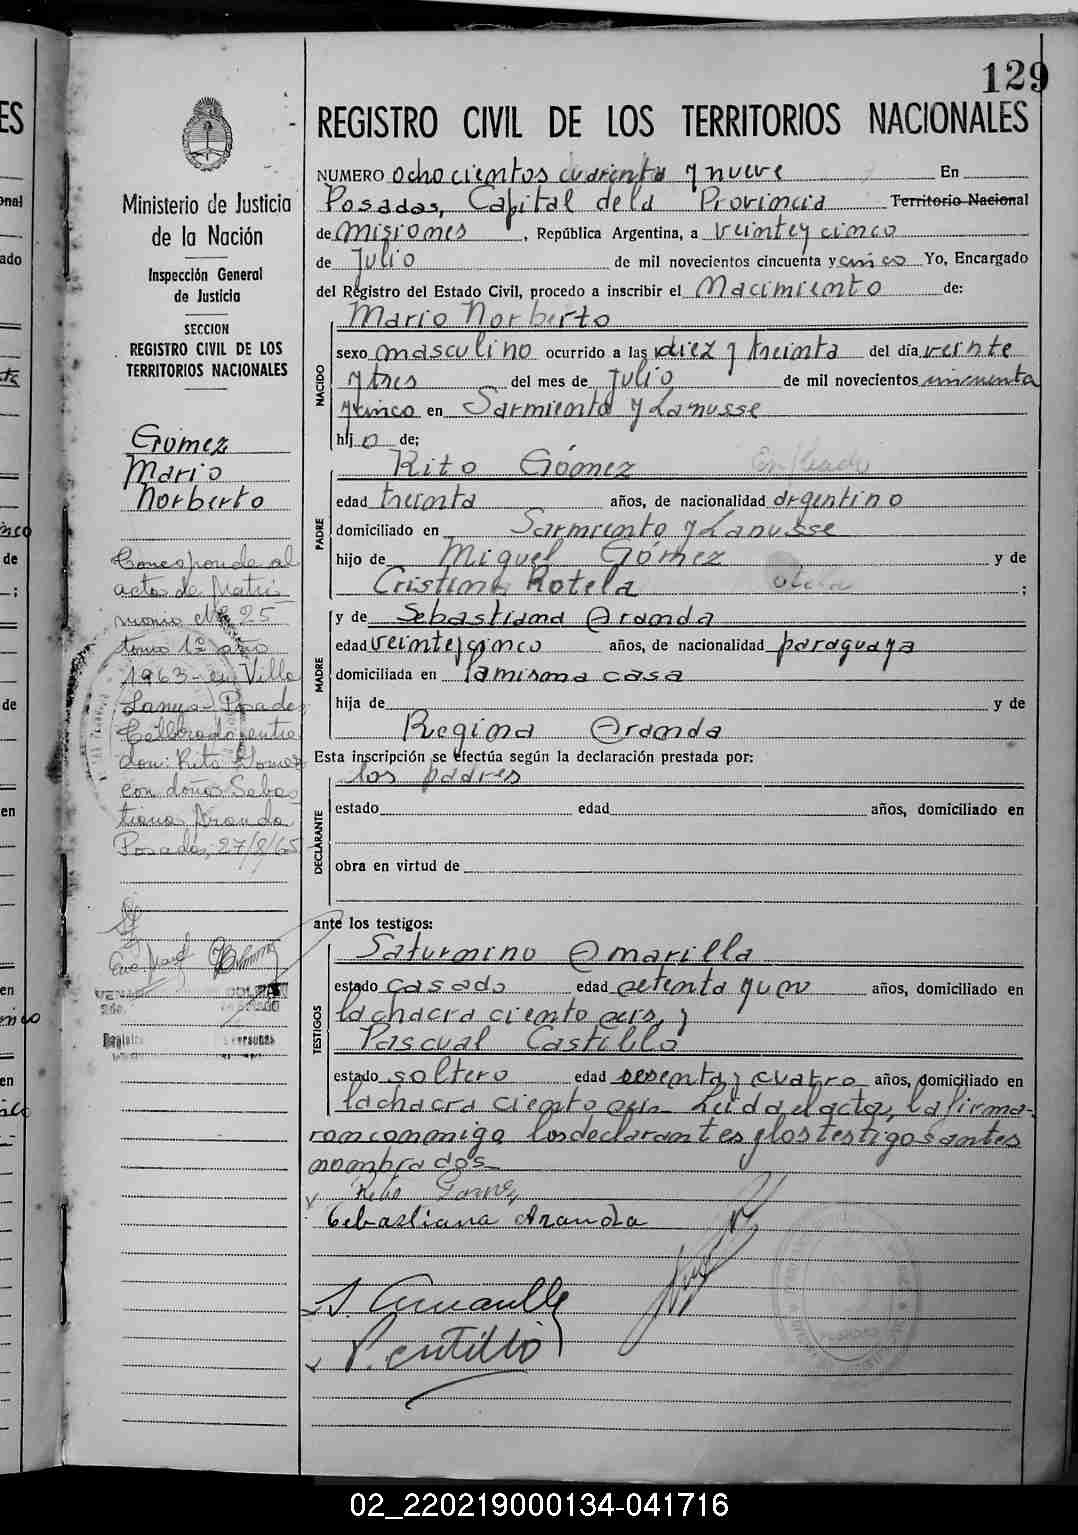 129
REGISTRO CIVIL DE LOS TERRITORIOS NACIONALES
Ministerio de Justicia
de la Nación
Inspección General
de Justicia
SECCION
REGISTRO CIVIL DE LOS
TERRITORIOS NACIONALES
Gómez
Mario
Norberto
Corresponde al
acta de Matri
monio Nº 25
tomo 1º año
1963 - en Villa
Lanus - Posadas
Celebrado entre
don: Rito Gomez
con doña Sebas
tiana Aranda
Posadas, 27/8/65
NUMERO ochocientos cuarenta y nueve En
Posadas, Capital de la Provincia Territorio Nacional
de Misiones, República Argentina, a veinte y cinco
de Julio de mil novecientos cincuenta y cinco Yo, Encargado
del Registro del Estado Civil, procedo a inscribir el Nacimiento de:
Mario Norberto
NACIDO
sexo masculino ocurrido a las diez y treinta del día veinte
y tres del mes de Julio de mil novecientos cincuenta
y cinco en Sarmiento y Lanusse
hijo de;
PADRE
Rito Gómez Empleado
edad treinta años, de nacionalidad argentino
domiciliado en Sarmiento y Lanusse
hijo de Miguel Gómez y de
Cristina Rotela ;
MADRE
y de Sebastiana Aranda
edad veinte y cinco años, de nacionalidad paraguaya
domiciliada en la misma casa
hija de y de
Regina Aranda
Esta inscripción se efectúa según la declaración prestada por:
los padres
DECLARANTE
estado edad años, domiciliado en
obra en virtud de
ante los testigos:
TESTIGOS
Saturnino Amarilla
estado casado edad setenta y un años, domiciliado en
la chacra ciento seis, y
Pascual Castillo
estado soltero edad sesenta y cuatro años, domiciliado en
la chacra ciento seis Leida el acta, la firma-
ron conmigo los declarantes y los testigos antes
nombrados
Rito Gomez
Sebastiana Aranda
S. Amarilla
P. Castillo
02_220219000134-041716